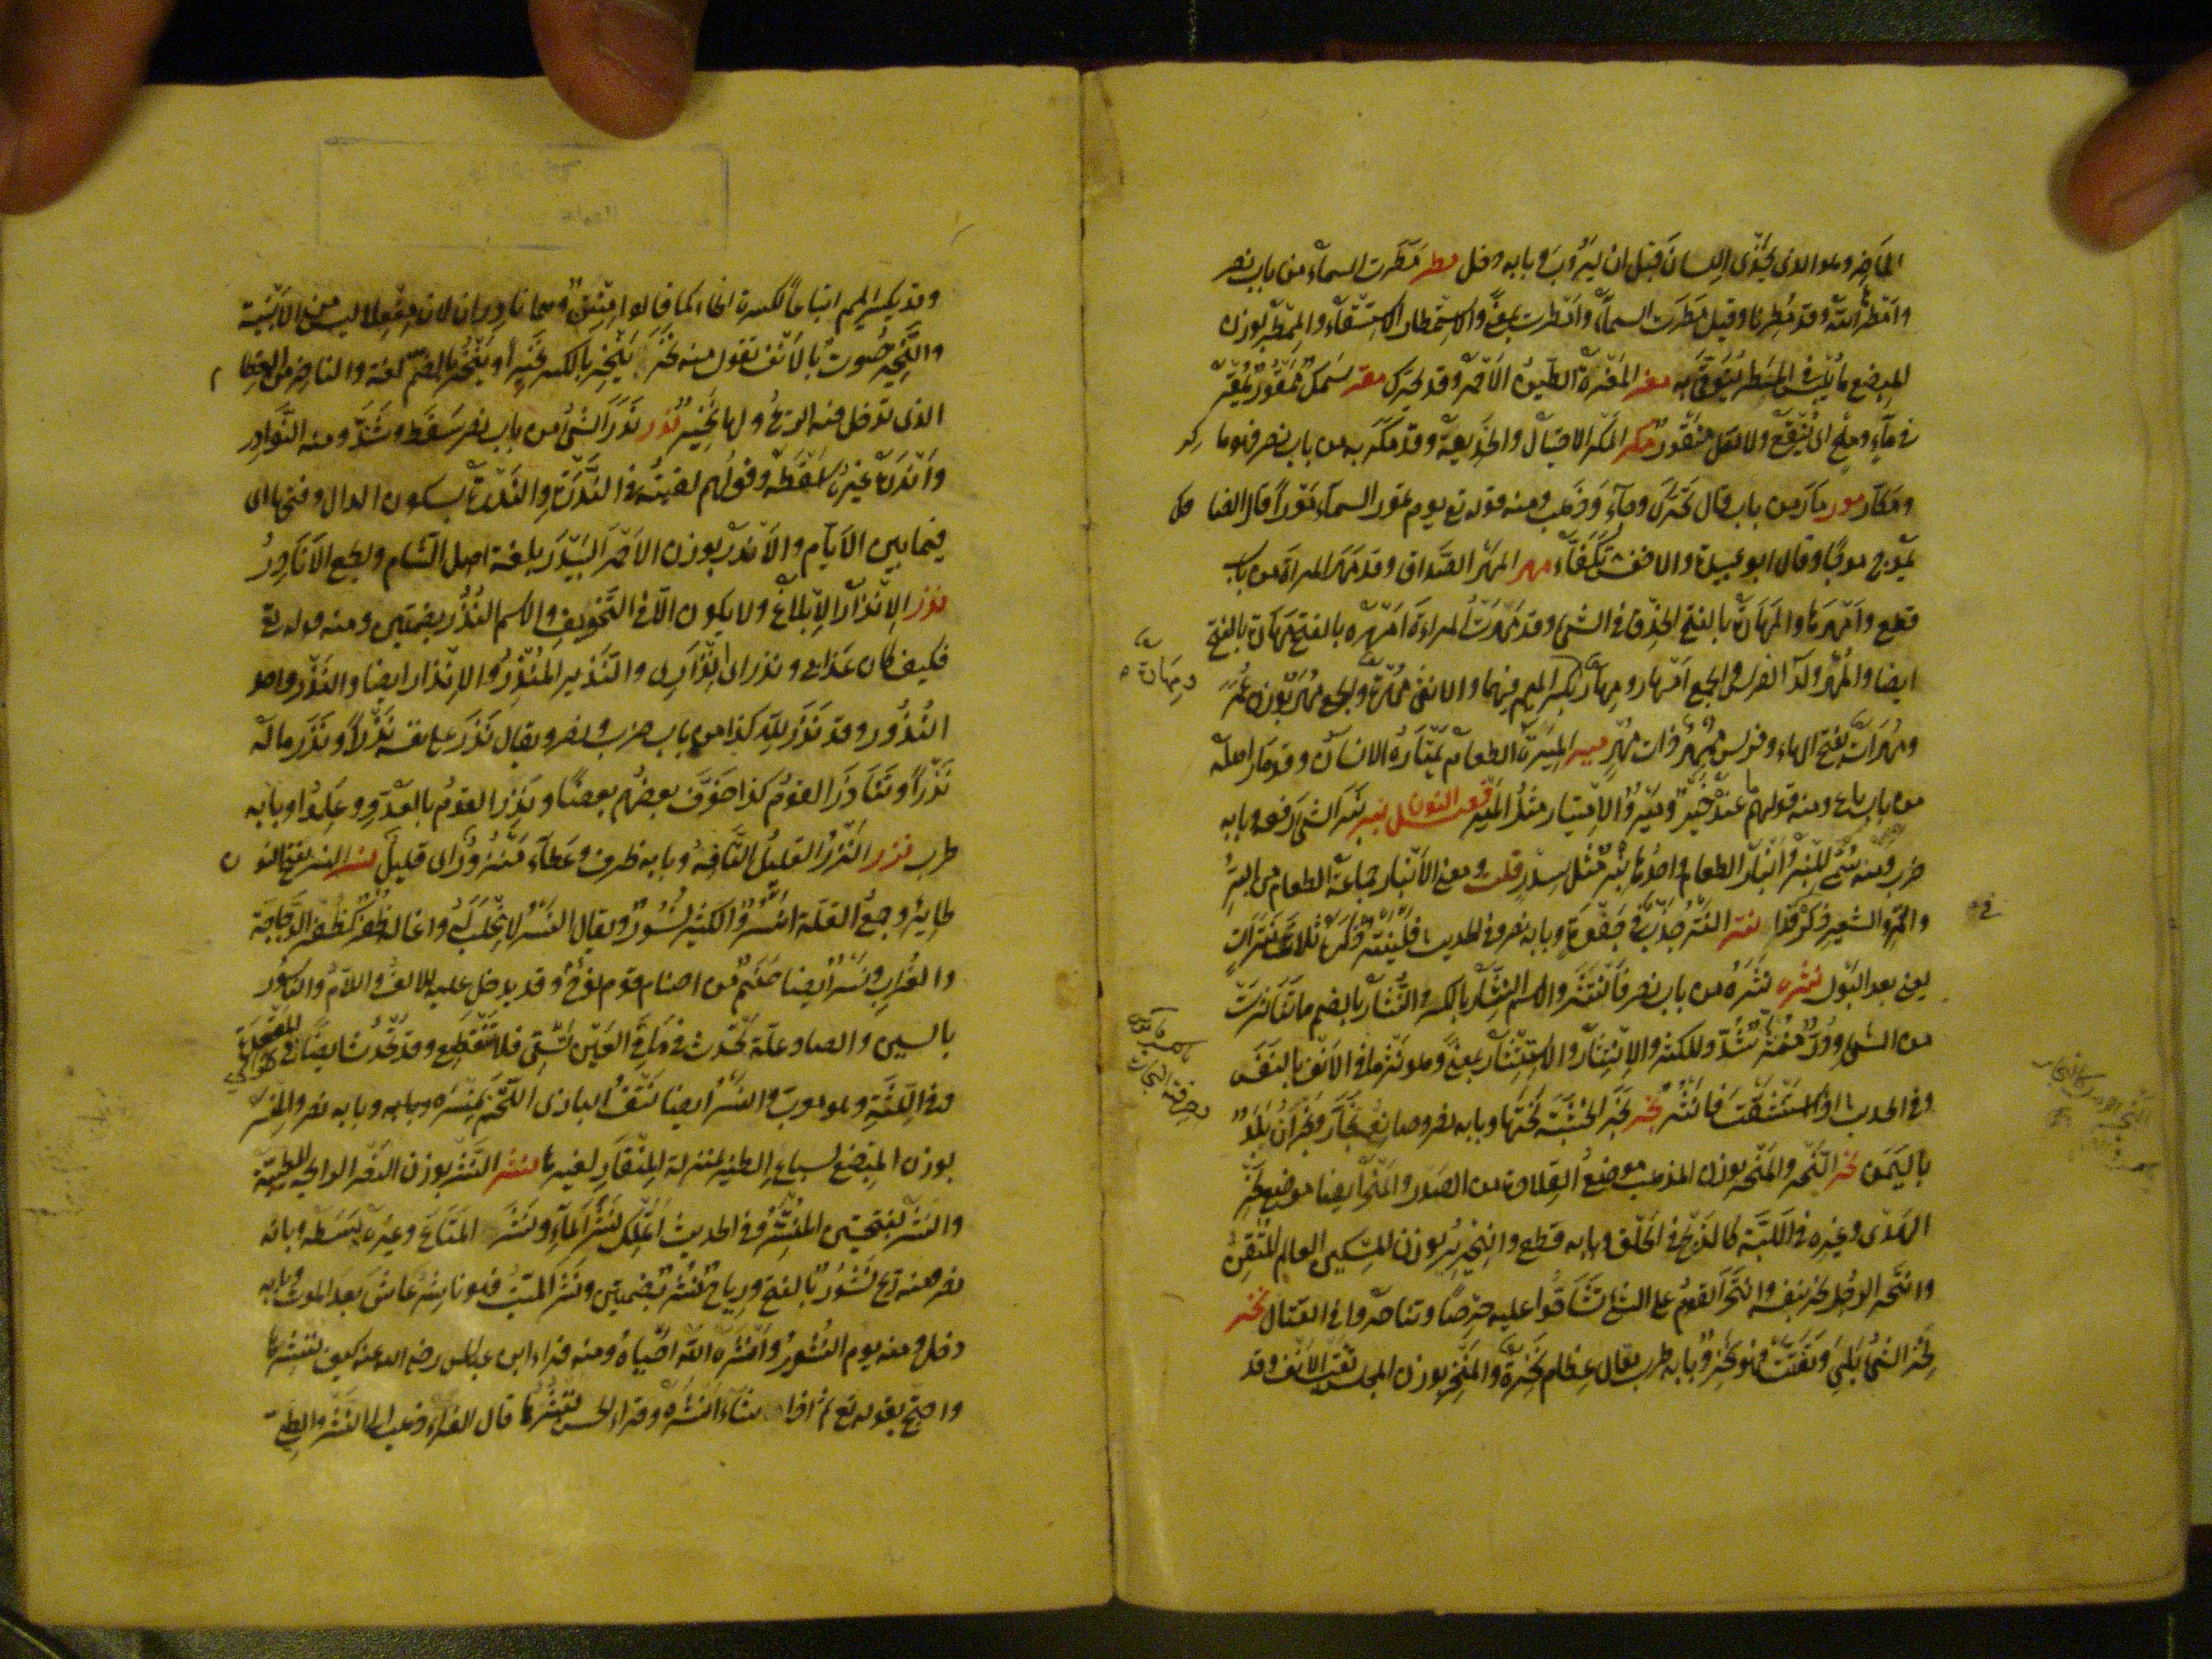 الماضر وهو الذي يحذي اللسان قبل ان يروب وبابه دخل مطر مطرت السماء من باب نصر
وامطرها الله وقد مطرنا وقيل مطرت السماء وامطرت بمعنى والاستمطار الاستسقاء والممطر بوزن
المبضع ما يلبس في المطر يتوقى به مغر المغرة الطين الاحمر وقد تحرك مقر سمك ممقور يمقر
في ماء وملح اى ينقع ولا تقل منقور مكر المكر الاحتيال والخديعة وقد مكر به من باب نصر فهو ماكر
ومكار مور مار من باب قال تحرك وجاء وذهب ومنه قوله تع يوم تمور السماء مورا قال الضحاك
تموج موجا وقال ابو عبيدة والاخفش تكفأ مهر المهر الصداق وقد مهر المراة من باب
قطع وامهرها والمهارة بالفتح الحذق في الشئ وقد مهرت المراة امهره بالفتح مهارة بالفتح
ايضا والمهر ولد الفرس والجمع امهار ومهار بكسر الميم فيهما والانثى مهرة والجمع مهر بوزن عمر
ومهرات بفتح الهاء وفرس ممهر ذات مهر مير الميرة الطعام يمتاره الانسان وقد مار اهله
من باب باع ومنه قولهم ما عنده خير ولا مير والامتيار مثل المير فصل النون نبر نبر الشئ رفعه وبابه
ضرب ومنه سمى المنبر وانبار الطعام واحدها نبر مثل سدر قلت ومعنى الانبار جماعة الطعام من البر
والتمر والشعير ذكره في نتر النتر جذب في جفوة وبابه نصر وفي الحديث فلينتر ذكره ثلاث نترات
يعني بعد البول نثر نثره من باب نصر فانتثر والاسم النثار بالكسر والنثار بالضم ما تناثر
من الشئ ودر منثر شدد للكثرة والانتثار والاستنثار بمعنى وهو نثر ما في الانف بالنفس
وفي الحديث اذا استنشقت فانثر نجر نجر الخشبة نحتها وبابه نصر وصانعه نجار ونجران بلد
باليمن نحر النحر والمنحر بوزن المذهب موضع القلادة من الصدر والمنحر ايضا موضع نحر
الهدى وغيره والنحر في اللبة كالذبح في الحلق وبابه قطع والنحرير بوزن المسكين العالم المتقن
وانتحر الرجل نحر نفسه وانتحر القوم على الشئ تشاحوا عليه حرصا وتناحروا في القتال نخر
نخر الشئ بلى وتفتت فهو نخر وبابه طرب يقال عظام نخرة والمنخر بوزن المجلس ثقب الانف وقد
وقد يكسر الميم اتباعا لكسرة الخاء كما قالوا منتن وهما نادران لان مفعلا ليس من الابنية
والنخير صوت بالانف تقول منه نخر ينخر بالكسر نخيرا وينخر بالضم لغة والناخر من العظام
الذى تدخل فيه الريح ولها نخير ندر ندر الشئ من باب نصر سقط وشذ ومنه النوادر
واندره غيره اسقطه وقولهم لقيته في الندرة والندرة بسكون الدال وفتحها اى
فيما بين الايام والاندر بوزن الاحمر البيدر بلغة اهل الشام والجمع الانادر
نذر الانذار الابلاغ ولا يكون الا في التخويف والاسم النذر بضمتين ومنه قوله تع
فكيف كان عذابى ونذر اى انذارى والنذير المنذر والانذار ايضا والنذر واحد
النذور وقد نذر لله كذا من باب ضرب ونصر ويقال نذر على نفسه نذرا ونذر ماله
نذرا وتناذر القوم كذا خوف بعضهم بعضا ونذر القوم بالعدو علموا وبابه
طرب نزر النزر القليل التافه وبابه ظرف وعطاء منزور اى قليل نسر النسر بفتح النون
طائر وجمع القلة انسر والكثير نسور ويقال النسر لا مخلب له وانما له ظفر كظفر الدجاجة
والغراب ونسر ايضا صنم من اصنام قوم نوح وقد يدخل عليه الالف واللام والناسور
بالسين والصاد علة تحدث في ماق العين تسقى فلا تنقطع وقد تحدث ايضا في حوالى المقعدة
وفي اللثة وهو معرب والنسر ايضا نتف البازى اللحم بمنسره وبابه نصر والمنسر
بوزن المبضع لسباع الطير بمنزلة المنقار لغيرها نشر النشر بوزن النصر الرائحة الطيبة
والنشر بفتحتين المنتشر وفي الحديث اتملك نشر الماء ونشر المتاع وغيره بسطه وبابه
نصر ومنه ريح نشور بالفتح ورياح نشر بضمتين ونشر الميت فهو ناشر عاش بعد الموت وبابه
دخل ومنه يوم النشور وانشره الله احياه ومنه قراءة ابن عباس رضى الله عنه كيف ننشرها
واحتج بقوله تع ثم اذا شاء انشره وقراء الحسن ننشرها قال الفراء ذهب الى النشر والطى